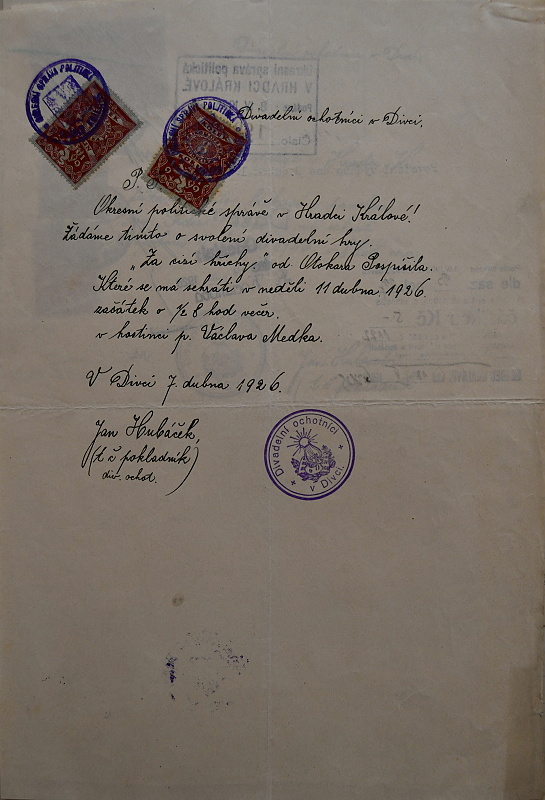 Divadelní ochotníci v Divci.
P.
Okresní politické správě v Hradci Králové!
Žádáme tímto o svolení divadelní hry.
"Za cizí hříchy" od Otokara Pospíšila.
Které se má sehráti v neděli 11 dubna 1926.
začátek o ½ 8 hod večer.
v hostinci p. Václava Medka.
V Divci 7. dubna 1926.
Jan Hubáček,
(t č pokladník)
div. ochot.
Divadelní ochotníci
v Divci.
okresní správa politická
V HRADCI KRÁLOVÉ
Číslo